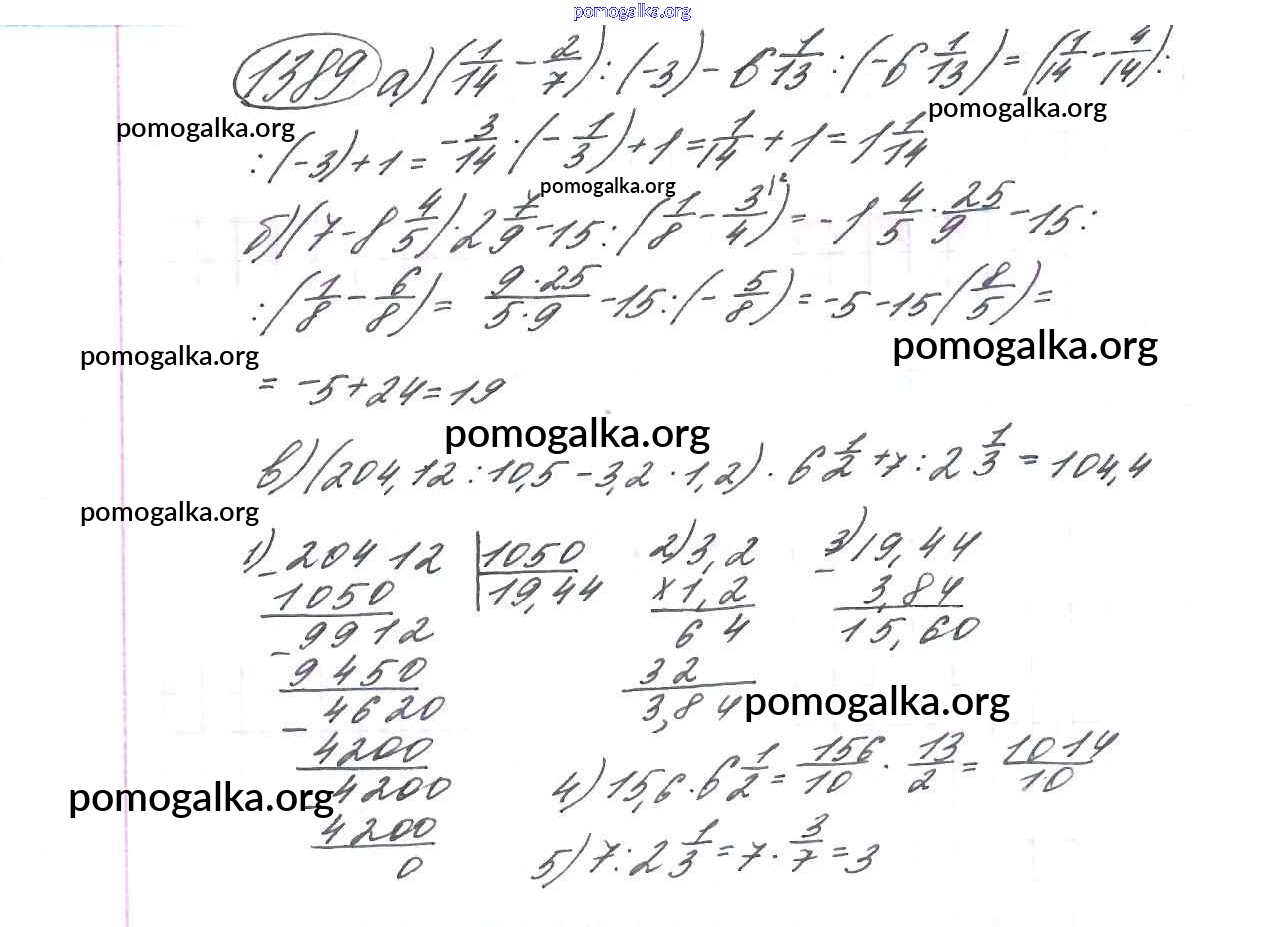 pomogalka.org
1389 а) (1/14 - 2/7) : (-3) - 6 1/13 : (-6 1/13) = (1/14 - 4/14) :
pomogalka.org
pomogalka.org
: (-3) + 1 = -3/14 · (-1/3) + 1 = 1/14 + 1 = 1 1/14
pomogalka.org
б) (7 - 8 4/5) · 2 7/9 - 15 : (1/8 - 3/4) = -1 4/5 · 25/9 - 15 :
: (1/8 - 6/8) = 9·25/5·9 - 15 : (-5/8) = -5 - 15 (8/5) =
pomogalka.org
pomogalka.org
= -5 + 24 = 19
pomogalka.org
в) (204,12 : 10,5 - 3,2 · 1,2) · 6 1/2 + 7 : 2 1/3 = 104,4
pomogalka.org
1) - 20412 | 1050
1050 | 19,44
- 9912
9450
- 4620
4200
- 4200
4200
0
2) 3,2
× 1,2
64
32
3,84
3) - 19,44
3,84
15,60
pomogalka.org
4) 15,6 · 6 1/2 = 156/10 · 13/2 = 1014/10
pomogalka.org
5) 7 : 2 1/3 = 7 · 3/7 = 3